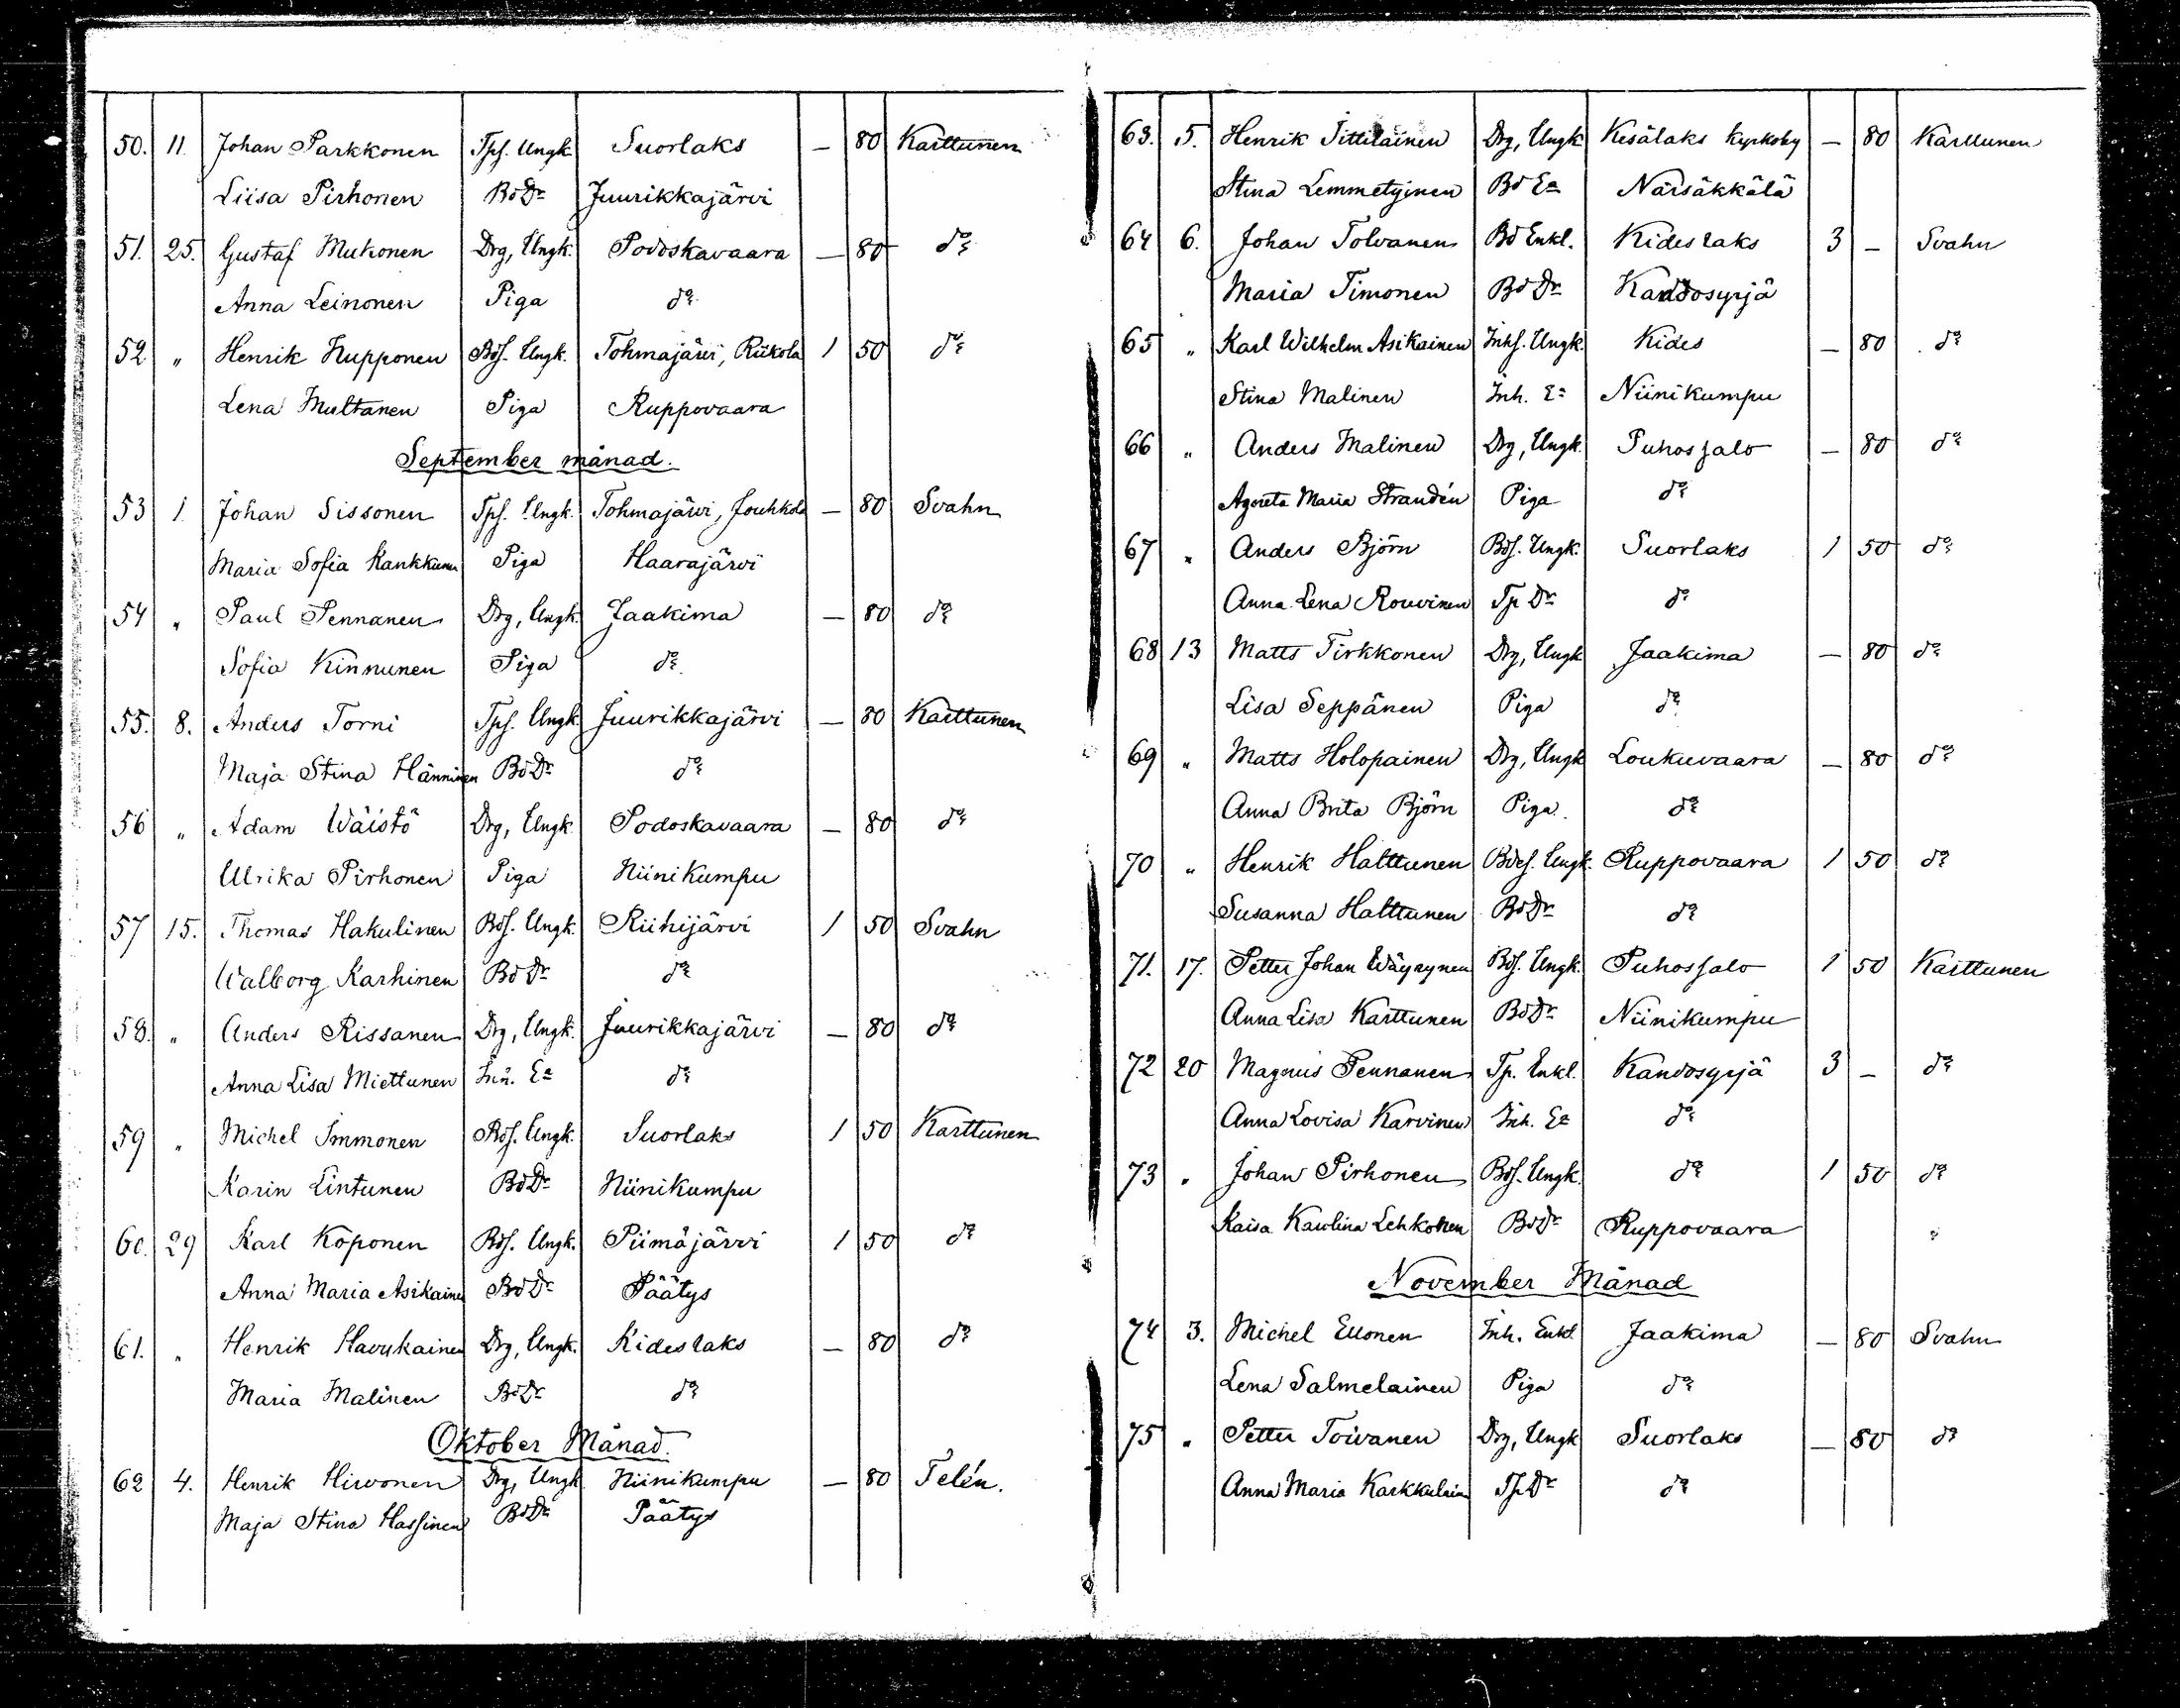 50. 11. Johan Parkkonen Tpf. Ungk. Suorlaks — 80 Karttunen
Liisa Pirhonen Bd Dr Juurikkajärvi
51. 25. Gustaf Mukonen Drg, Ungk. Podoskavaara — 80 do
Anna Leinonen Piga do
52 " Henrik Hupponen Bdf. Ungk. Tohmajärvi, Riikola 1 50 do
Lena Multanen Piga Ruppovaara
September månad.
53 1. Johan Sissonen Tpf. Ungk. Tohmajärvi, Jouhkola — 80 Svahn
Maria Sofia Kankkunen Piga Haarajärvi
54 " Paul Pennanen Drg, Ungk. Jaakima — 80 do
Sofia Kinnunen Piga do
55. 8. Anders Torni Tpf. Ungk. Juurikkajärvi — 80 Karttunen
Maja Stina Hänninen Bd Dr do
56 " Adam Wäistö Drg, Ungk. Podoskavaara — 80 do
Ulrika Pirhonen Piga Niinikumpu
57 15. Thomas Hakulinen Bdf. Ungk. Riihijärvi 1 50 Svahn
Walborg Karhinen Bd Dr do
58. " Anders Rissanen Drg, Ungk. Juurikkajärvi — 80 do
Anna Lisa Miettunen Inh. Ea do
59 " Michel Immonen Bdf. Ungk. Suorlaks 1 50 Karttunen
Karin Lintunen Bd Dr Niinikumpu
60. 29 Karl Koponen Bdf. Ungk. Piimäjärvi 1 50 do
Anna Maria Asikainen Bd Dr Päätys
61. " Henrik Havukainen Drg, Ungk. Kideslaks — 80 do
Maria Malinen Bd Dr do
Oktober Månad.
62 4. Henrik Hirvonen Drg, Ungk. Niinikumpu — 80 Telén.
Maja Stina Hassinen Bd Dr Päätys
63. 5. Henrik Tittilainen Drg, Ungk. Kesälaks kyrkoby — 80 Karttunen
Stina Lemmetyinen Bd Ea Närsäkkälä
64 6. Johan Tolvanen Bd Enkl. Kideslaks 3 — Svahn
Maria Timonen Bd Dr Kandosyrjä
65 " Karl Wilhelm Asikainen Inhf. Ungk. Kides — 80 do
Stina Malinen Inh. Ea Niinikumpu
66 " Anders Malinen Drg, Ungk. Puhossalo — 80 do
Agneta Maria Strandén Piga do
67 " Anders Björn Bdf. Ungk. Suorlaks 1 50 do
Anna Lena Rouvinen Tp Dr do
68 13 Matts Tirkkonen Drg, Ungk. Jaakima — 80 do
Lisa Seppänen Piga do
69 " Matts Holopainen Drg, Ungk. Loukuvaara — 80 do
Anna Brita Björn Piga do
70 " Henrik Halttunen Bdef. Ungk. Ruppovaara 1 50 do
Susanna Halttunen Bd Dr do
71. 17. Petter Johan Wäyrynen Bdf. Ungk. Puhossalo 1 50 Karttunen
Anna Lisa Karttunen Bd Dr Niinikumpu
72 20 Magnus Pennanen Tp. Enkl. Kandosyrjä 3 — do
Anna Lovisa Karvinen Inh. Ea do
73 " Johan Pirhonen Bdf. Ungk. do 1 50 do
Kaisa Karolina Lehkonen Bd Dr Ruppovaara
November Månad
74 3. Michel Ellonen Inh. Enkl. Jaakima — 80 Svahn
Lena Salmelainen Piga do
75 " Petter Toivanen Drg, Ungk Suorlaks — 80 do
Anna Maria Karkkulainen Tp Dr do